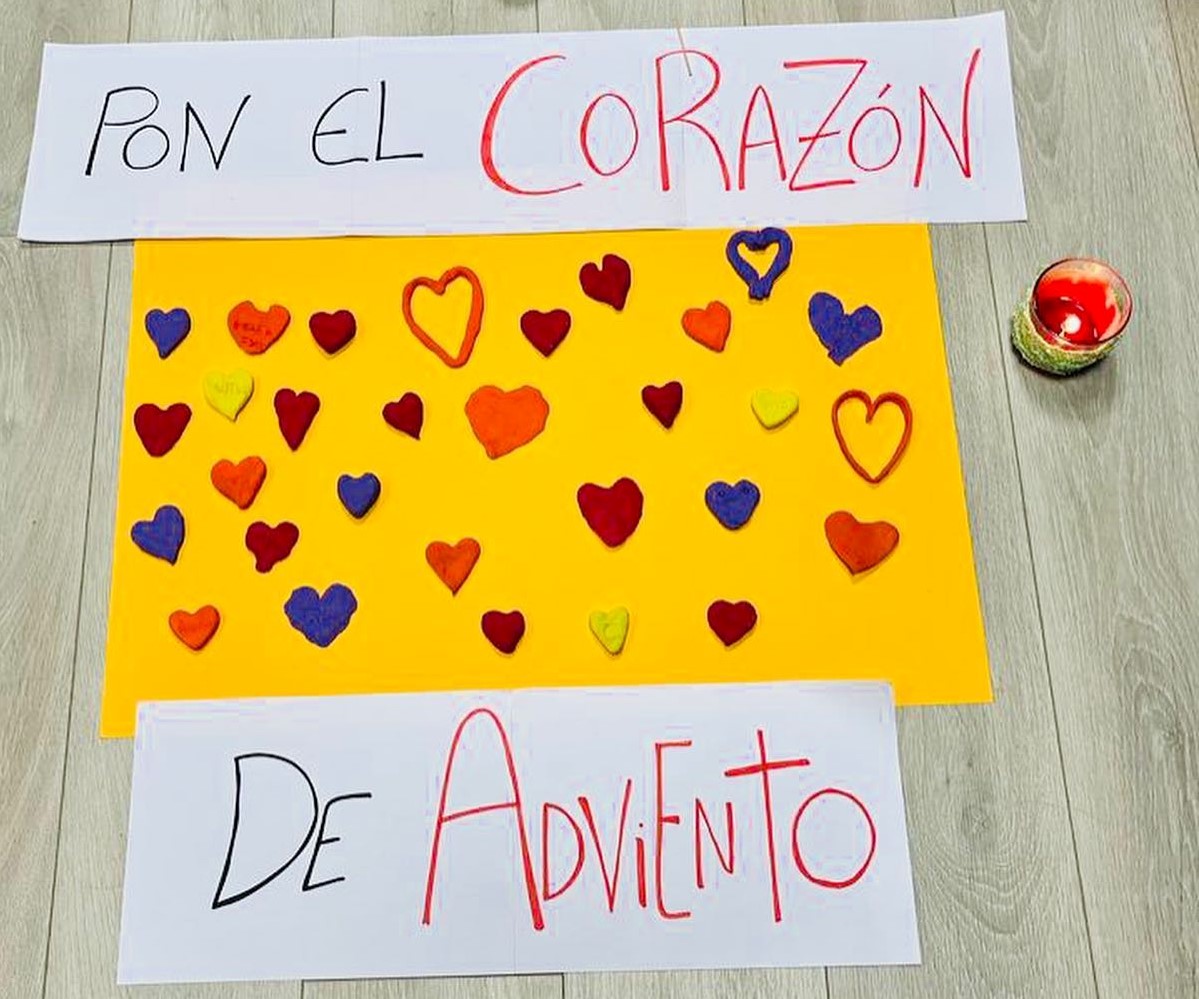 PON EL CORAZÓN
DE ADViENTO